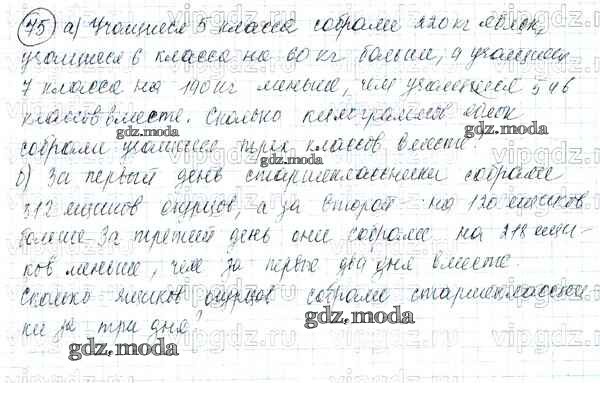 75 а) Учащиеся 5 класса собрали 220 кг яблок,
учащиеся 6 класса на 60 кг больше, а учащиеся
7 класса на 190 кг меньше, чем учащиеся 5 и 6
классов вместе. Сколько килограммов яблок
собрали учащиеся трёх классов вместе?
б) За первый день старшеклассники собрали
312 ящиков огурцов, а за второй - на 120 ящиков
больше. За третий день они собрали на 218 ящи-
ков меньше, чем за первые два дня вместе.
Сколько ящиков огурцов собрали старшеклассни
ки за три дня?
gdz.moda
gdz.moda
gdz.moda
gdz.moda
gdz.moda
vipgdz.ru